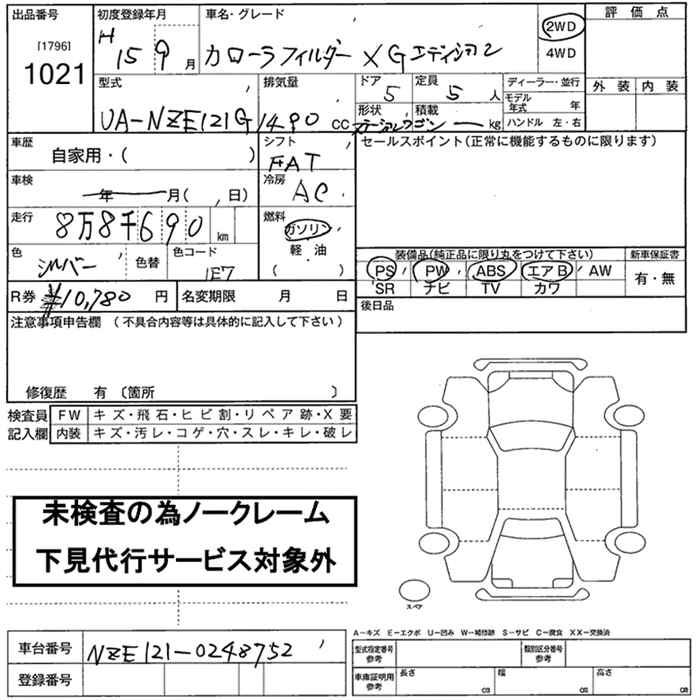 出品番号 初度登録年月 車名・グレード 評価点
[1796]
1021
H 15 9 月
カローラフィルダー XGエディション
2WD
4WD
外装 内装
型式 排気量 ドア 定員 ディーラー・並行
UA-NZE121G 1490 cc
5 5 人
モデル年式 年
形状 積載
ステーションワゴン ー kg
ハンドル 左・右
車歴 シフト セールスポイント(正常に機能するものに限ります)
自家用・( )
FAT
車検 冷房
年 月( 日)
AC
走行 燃料
8万8千690 km
ガソリン
軽・油
( )
色 色替 色コード
シルバー 1E7
装備品(純正品に限り丸をつけて下さい) 新車保証書
PS PW ABS エアB AW
SR ナビ TV カワ
有・無
R券 ¥10,780 円 名変期限 月 日
後日品
注意事項申告欄 (不具合内容等は具体的に記入して下さい)
修復歴 有 〔箇所 〕
検査員記入欄
FW キズ・飛石・ヒビ割・リペア跡・X要
内装 キズ・汚レ・コゲ・穴・スレ・キレ・破レ
未検査の為ノークレーム
下見代行サービス対象外
スペア
A-キズ E-エクボ U-凹み W-補修跡 S-サビ C-腐食 XX-交換済
車台番号 NZE121-0248752
型式指定番号 参考 類別区分番号 参考
登録番号
車庫証明用 参考 長さ cm 幅 cm 高さ cm